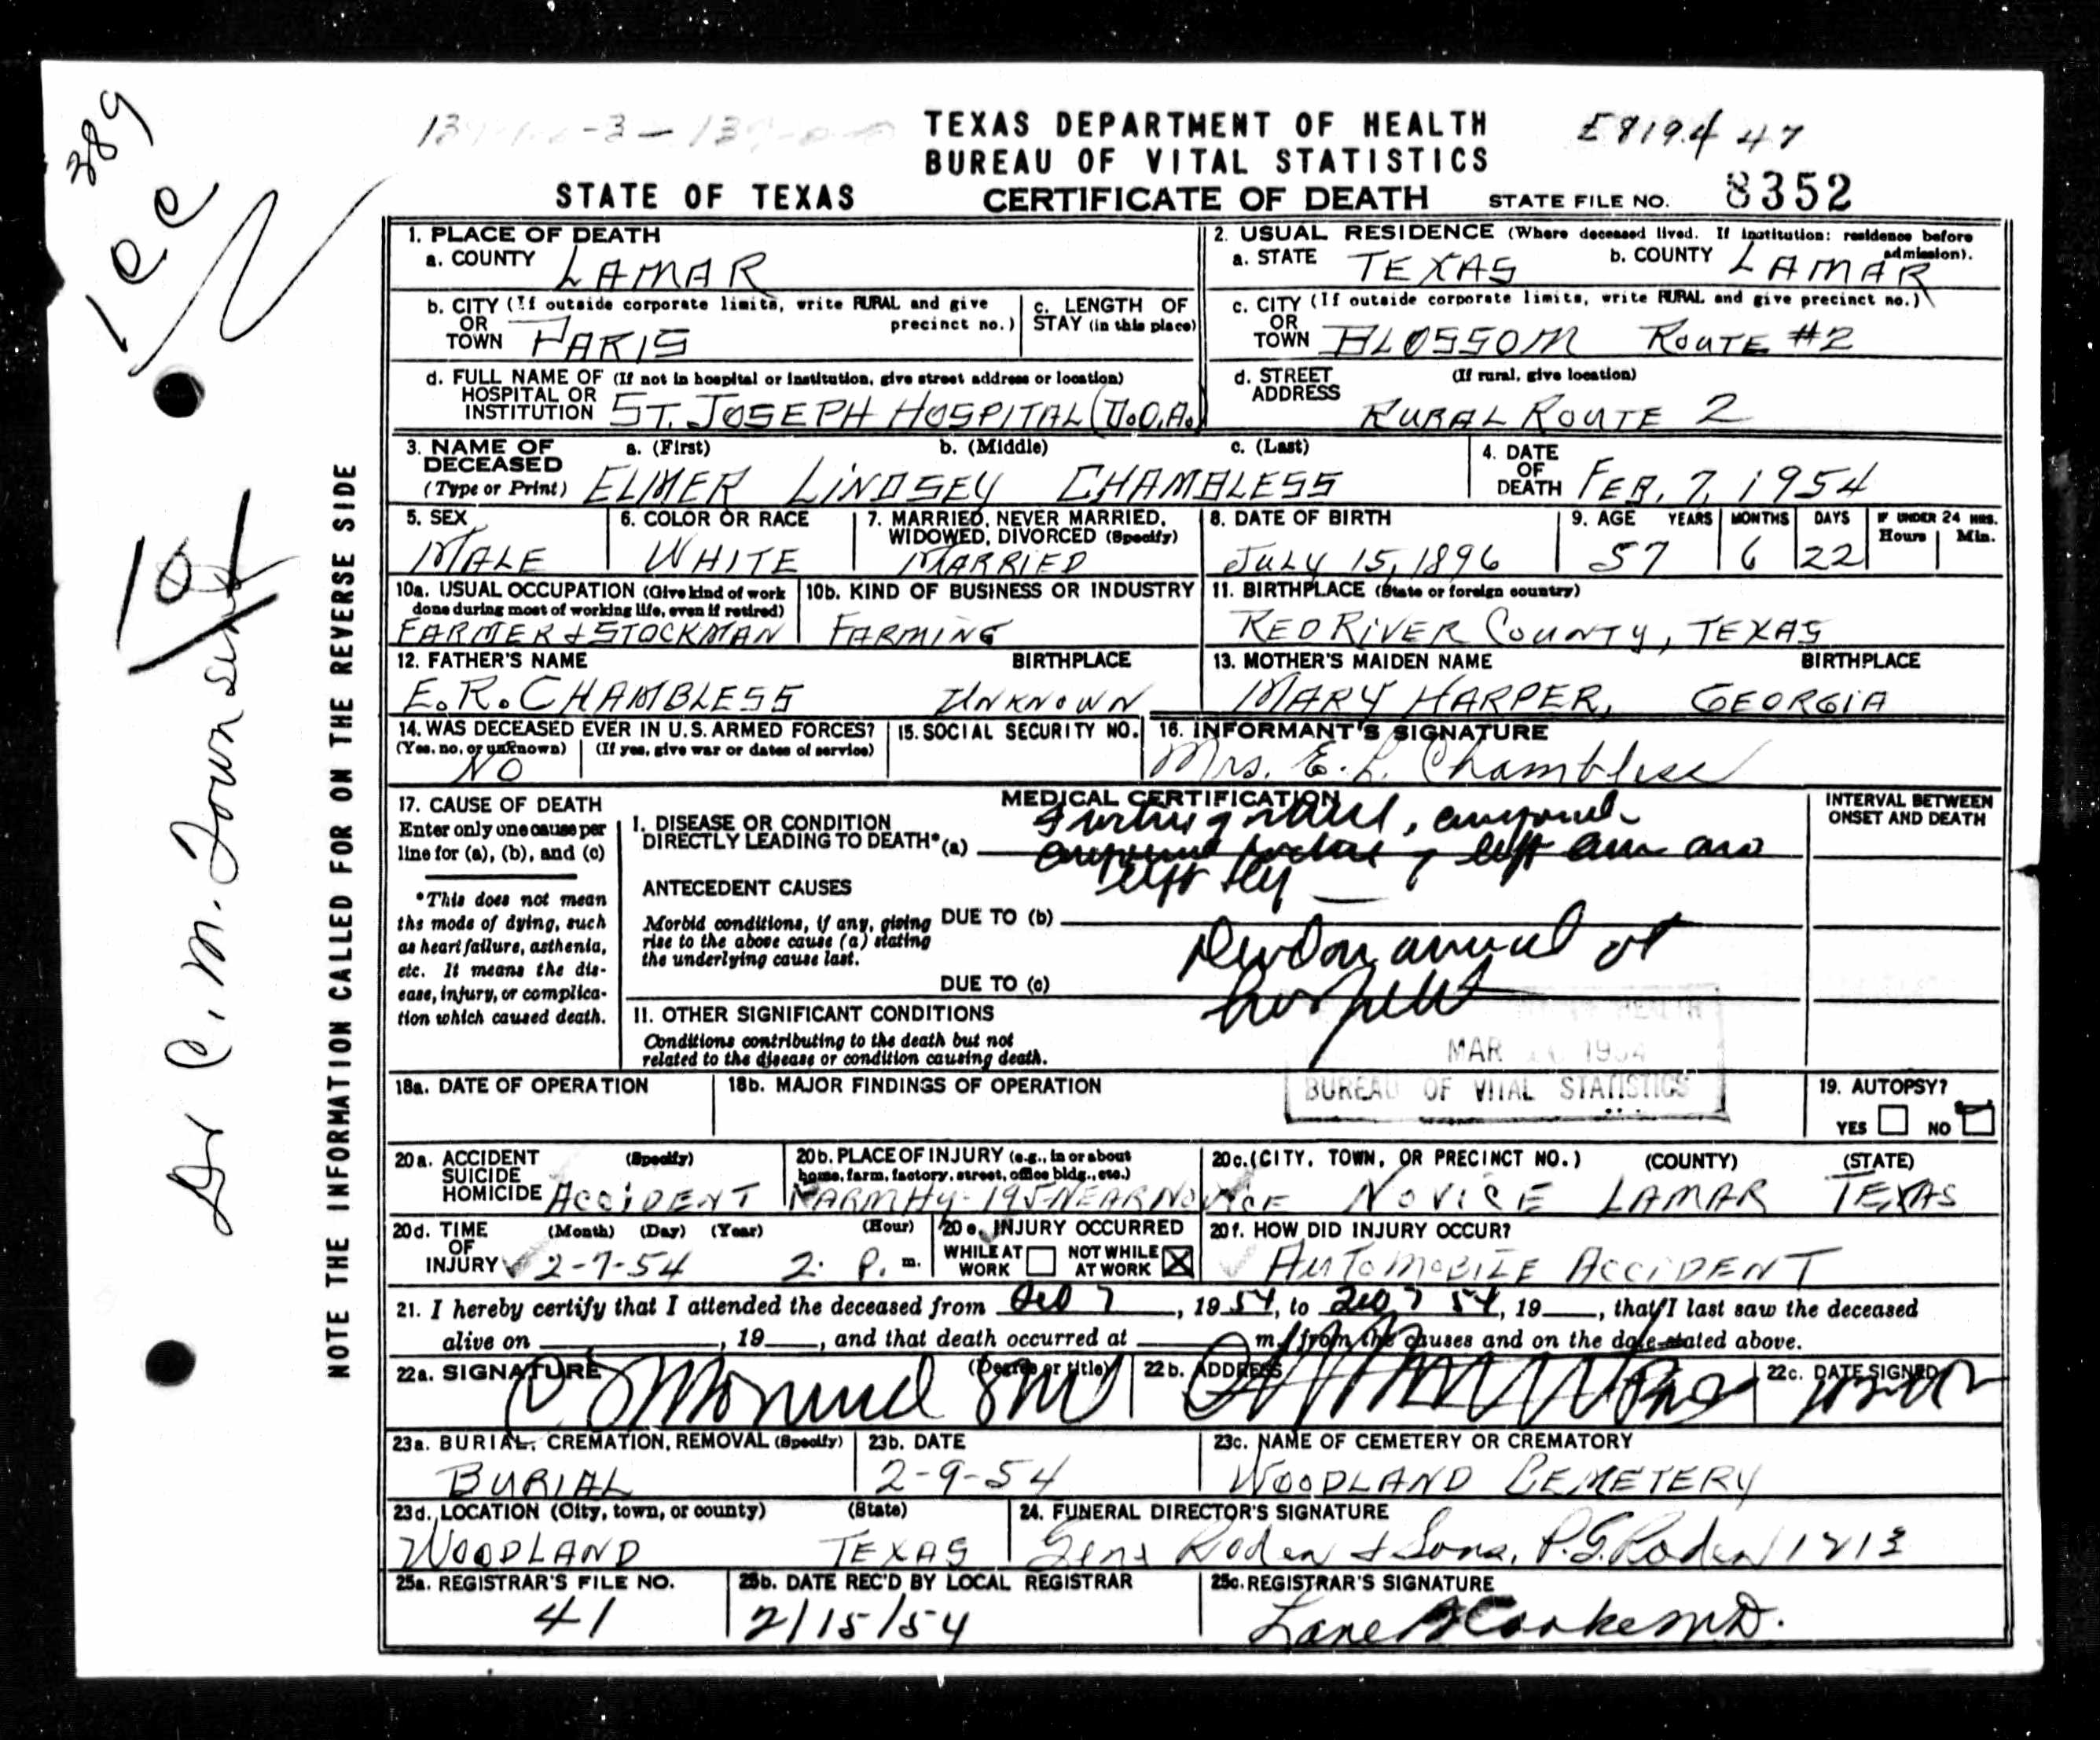 389
TEXAS DEPARTMENT OF HEALTH
E8194 47
BUREAU OF VITAL STATISTICS
STATE OF TEXAS CERTIFICATE OF DEATH STATE FILE NO. 8352
1. PLACE OF DEATH
a. COUNTY LAMAR
2. USUAL RESIDENCE (Where deceased lived. If institution: residence before admission).
a. STATE TEXAS b. COUNTY LAMAR
b. CITY (If outside corporate limits, write RURAL and give precinct no.)
OR TOWN PARIS
c. LENGTH OF STAY (in this place)
c. CITY (If outside corporate limits, write RURAL and give precinct no.)
OR TOWN BLOSSOM ROUTE #2
d. FULL NAME OF (If not in hospital or institution, give street address or location)
HOSPITAL OR INSTITUTION ST. JOSEPH HOSPITAL (D.O.A.)
d. STREET ADDRESS (If rural, give location)
RURAL ROUTE 2
3. NAME OF DECEASED (Type or Print) a. (First) b. (Middle) c. (Last)
ELMER LINDSEY CHAMBLESS
4. DATE OF DEATH FEB. 7, 1954
5. SEX MALE
6. COLOR OR RACE WHITE
7. MARRIED, NEVER MARRIED, WIDOWED, DIVORCED (Specify) MARRIED
8. DATE OF BIRTH JULY 15, 1896
9. AGE YEARS 57 MONTHS 6 DAYS 22 IF UNDER 24 HRS. Hours Min.
10a. USUAL OCCUPATION (Give kind of work done during most of working life, even if retired)
FARMER & STOCKMAN
10b. KIND OF BUSINESS OR INDUSTRY
FARMING
11. BIRTHPLACE (State or foreign country)
RED RIVER COUNTY, TEXAS
12. FATHER'S NAME BIRTHPLACE
E.R. CHAMBLESS UNKNOWN
13. MOTHER'S MAIDEN NAME BIRTHPLACE
MARY HARPER, GEORGIA
14. WAS DECEASED EVER IN U.S. ARMED FORCES?
(Yes, no, or unknown) (If yes, give war or dates of service)
NO
15. SOCIAL SECURITY NO.
16. INFORMANT'S SIGNATURE
Mrs. E. L. Chambless
17. CAUSE OF DEATH
Enter only one cause per line for (a), (b), and (c)
*This does not mean the mode of dying, such as heart failure, asthenia, etc. It means the disease, injury, or complication which caused death.
MEDICAL CERTIFICATION
I. DISEASE OR CONDITION DIRECTLY LEADING TO DEATH* (a)
left arm and
left leg
ANTECEDENT CAUSES
Morbid conditions, if any, giving rise to the above cause (a) stating the underlying cause last.
DUE TO (b)
DUE TO (c)
Dead on arrival at
hospital
II. OTHER SIGNIFICANT CONDITIONS
Conditions contributing to the death but not related to the disease or condition causing death.
INTERVAL BETWEEN ONSET AND DEATH
HEALTH
MAR 1954
BUREAU OF VITAL STATISTICS
18a. DATE OF OPERATION
18b. MAJOR FINDINGS OF OPERATION
19. AUTOPSY?
YES NO
20a. ACCIDENT SUICIDE HOMICIDE (Specify) ACCIDENT
20b. PLACE OF INJURY (e.g., in or about home, farm, factory, street, office bldg., etc.)
FARM HY-195-NEAR NOVICE
20c. (CITY, TOWN, OR PRECINCT NO.) (COUNTY) (STATE)
NOVICE LAMAR TEXAS
20d. TIME OF INJURY (Month) (Day) (Year) (Hour)
2-7-54 2. P. m.
20e. INJURY OCCURRED
WHILE AT WORK NOT WHILE AT WORK X
20f. HOW DID INJURY OCCUR?
AUTOMOBILE ACCIDENT
21. I hereby certify that I attended the deceased from Feb 7, 1954, to Feb 7 54, 19__, that I last saw the deceased
alive on ____, 19__, and that death occurred at ____ m., from the causes and on the date stated above.
22a. SIGNATURE (Degree or title)
22b. ADDRESS
22c. DATE SIGNED
23a. BURIAL, CREMATION, REMOVAL (Specify)
BURIAL
23b. DATE
2-9-54
23c. NAME OF CEMETERY OR CREMATORY
WOODLAND CEMETERY
23d. LOCATION (City, town, or county) (State)
WOODLAND TEXAS
24. FUNERAL DIRECTOR'S SIGNATURE
Gene Roden & Sons, P.G. Roden 1213
25a. REGISTRAR'S FILE NO.
41
25b. DATE REC'D BY LOCAL REGISTRAR
2/15/54
25c. REGISTRAR'S SIGNATURE
Lane B Cooke M.D.
NOTE THE INFORMATION CALLED FOR ON THE REVERSE SIDE
Dr C. M. Townsend